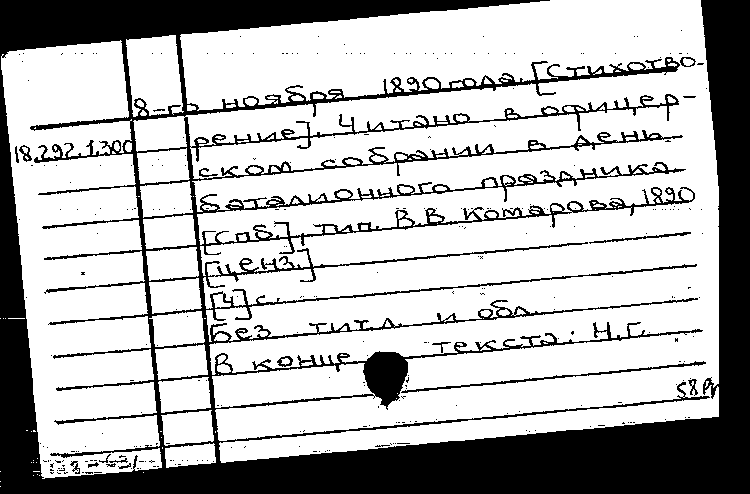 8-го ноября 1890 года. [Стихотво-
18.292.1.300 рение]. Читано в офицер-
ском собрании в день
баталионного праздника.
[Спб.], тип. В.В. Комарова, 1890
[ценз.].
[4] с.
Без тит.л. и обл.
В конце текста: Н.Г.